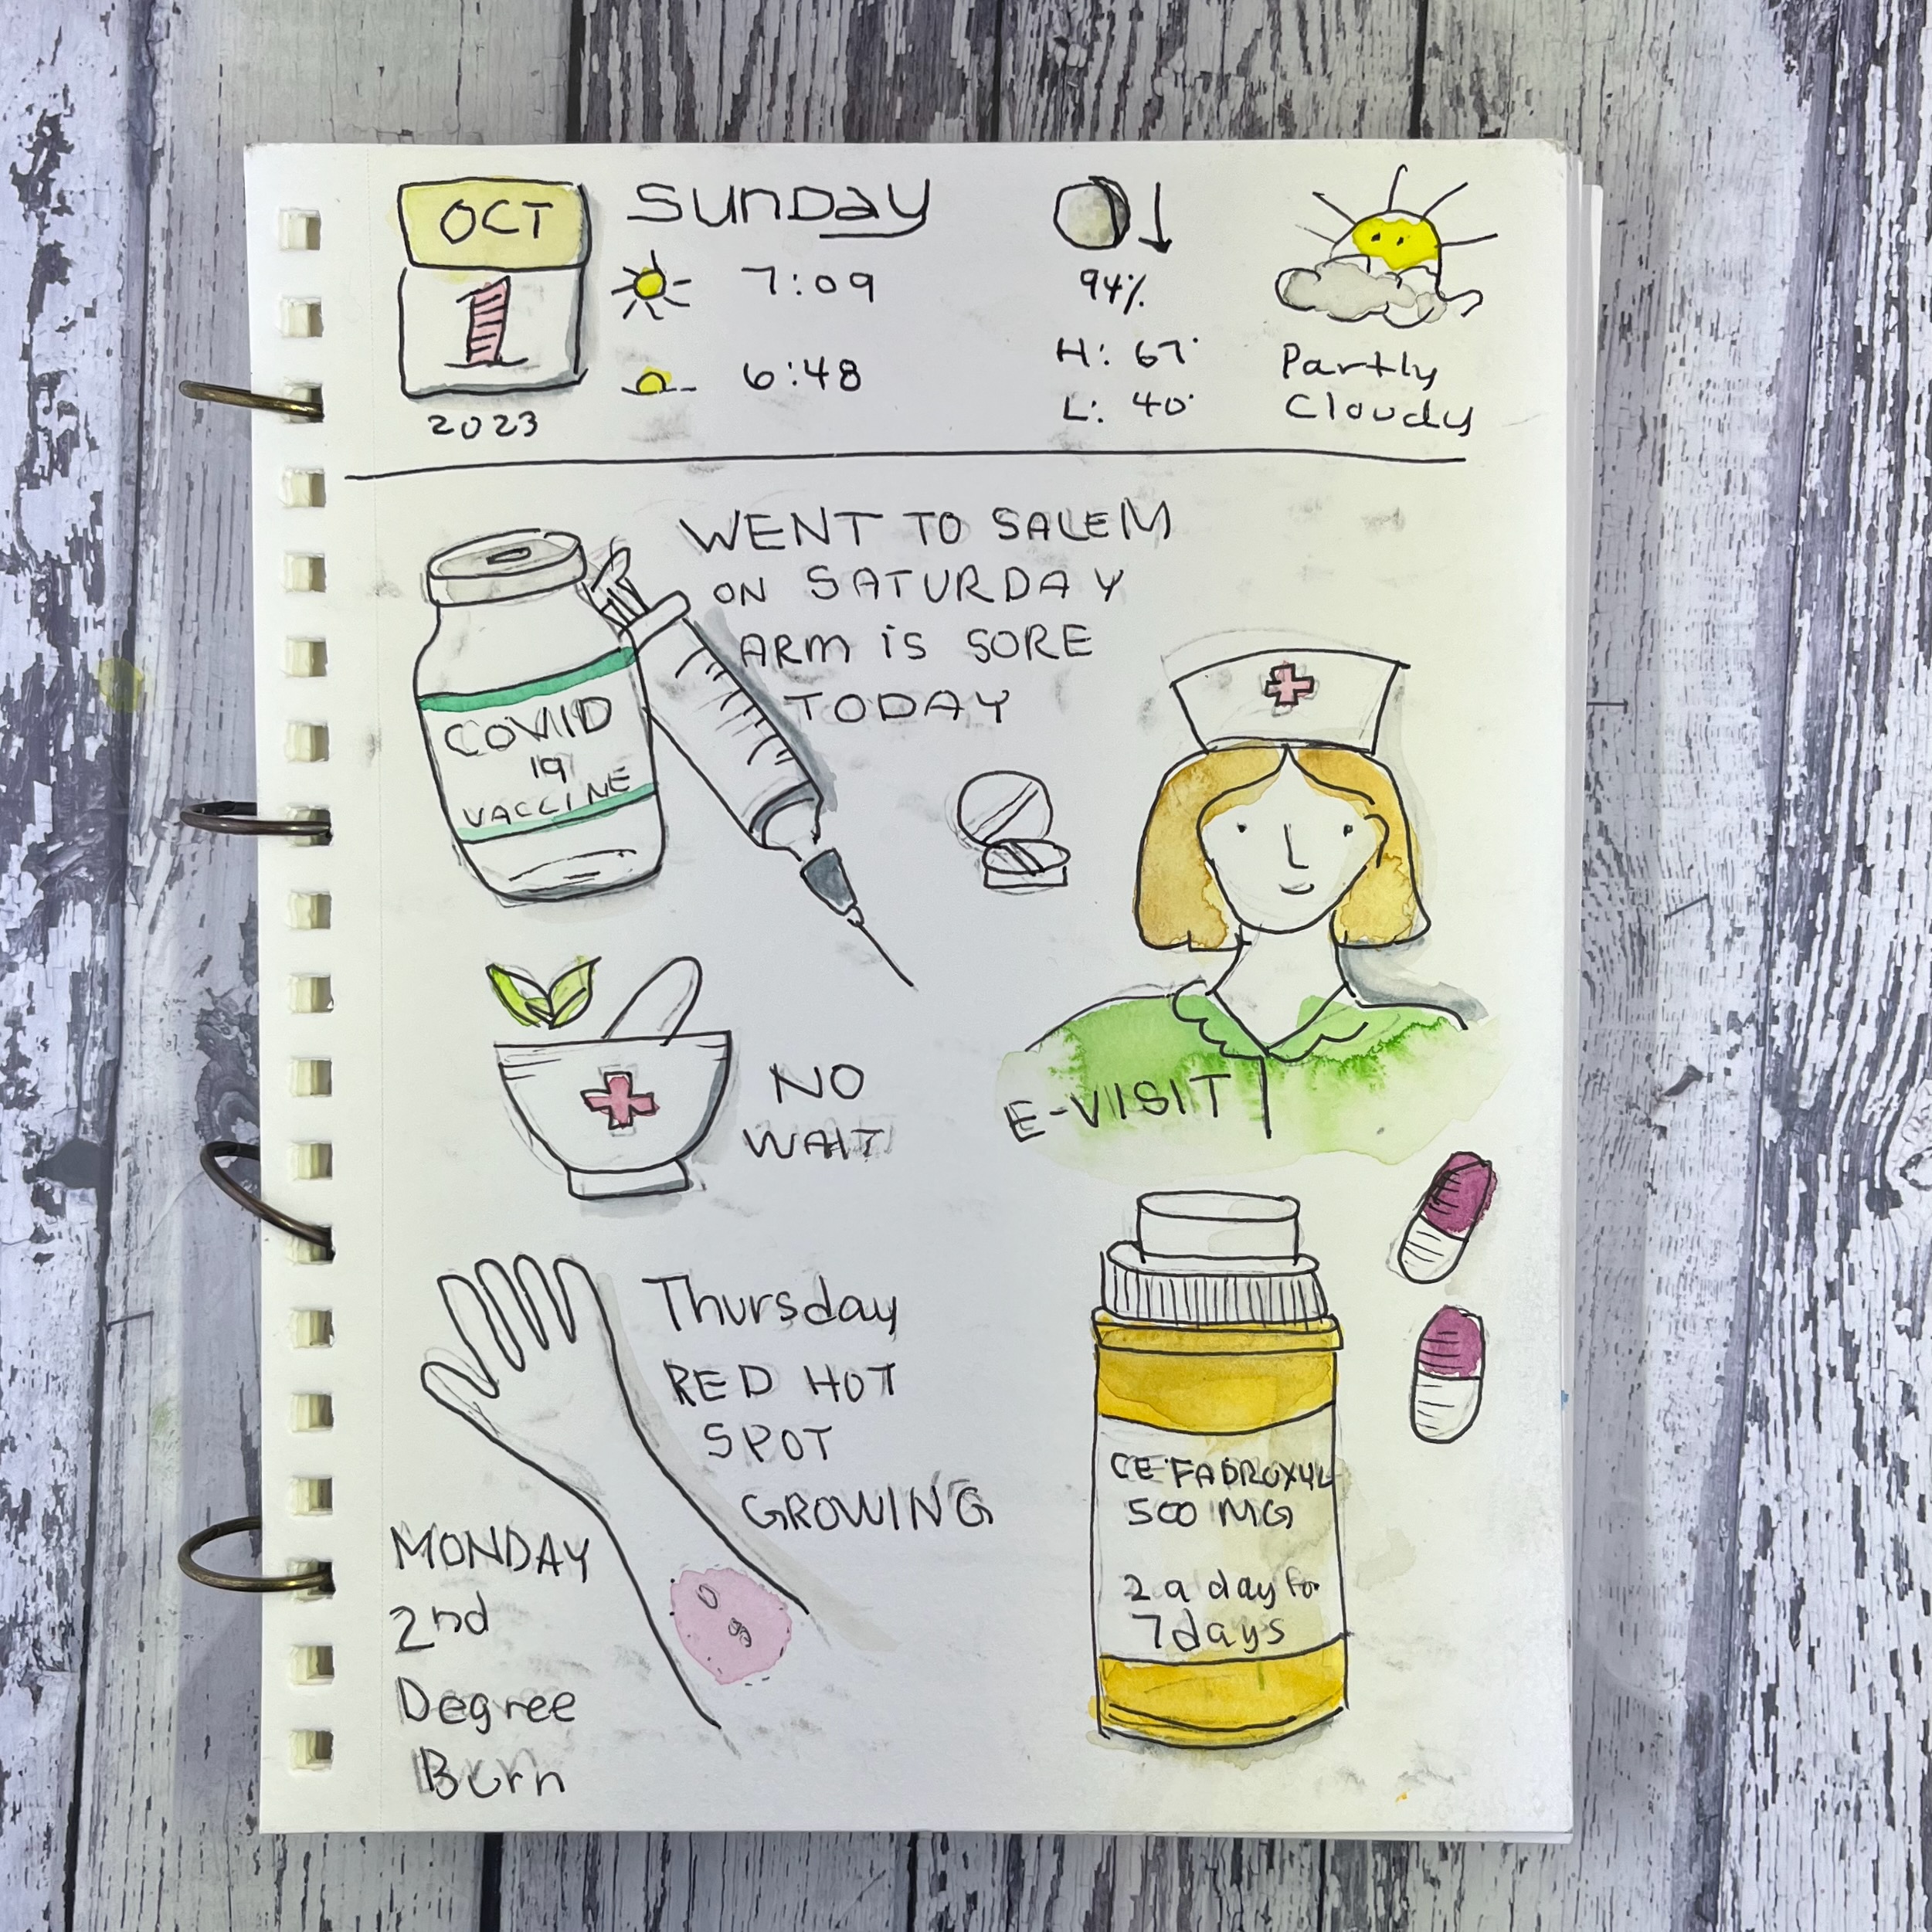 OCT
1
2023
Sunday
7:09
6:48
94%
H: 67°
L: 40°
Partly
Cloudy
WENT TO SALEM
ON SATURDAY
ARM iS SORE
TODAY
COVIID
19
VACCINE
NO
WAIT
E-VIISIT
Thursday
RED HOT
SPOT
GROWING
MONDAY
2nd
Degree
Burn
CEFADROXYL
500 MG
2 a day for
7 days